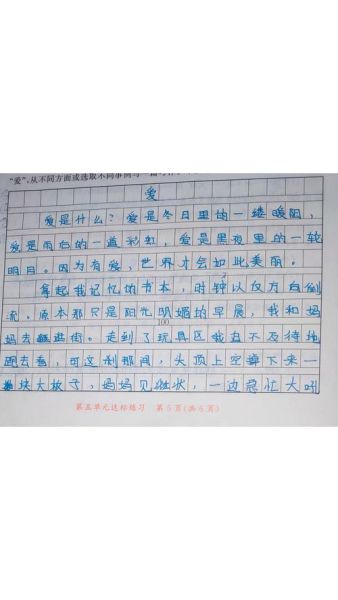 "爱",从不同方面或选取不同事例写一篇
爱
爱是什么?爱是冬日里的一缕暖阳,
爱是雨后的一道彩虹,爱是黑夜里的一轮
明月。因为有爱,世界才会如此美丽。
拿起我记忆的书本,时钟以反方向倒
流。原本那只是阳光明媚的早晨,我和妈
100
妈去逛街。走到了玩具区我迫不及待地
跑去看,可这刹那间,头顶上空掉下来一
块大板子,妈妈见状,一边急忙大吼
第五单元达标练习 第5页(共6页)